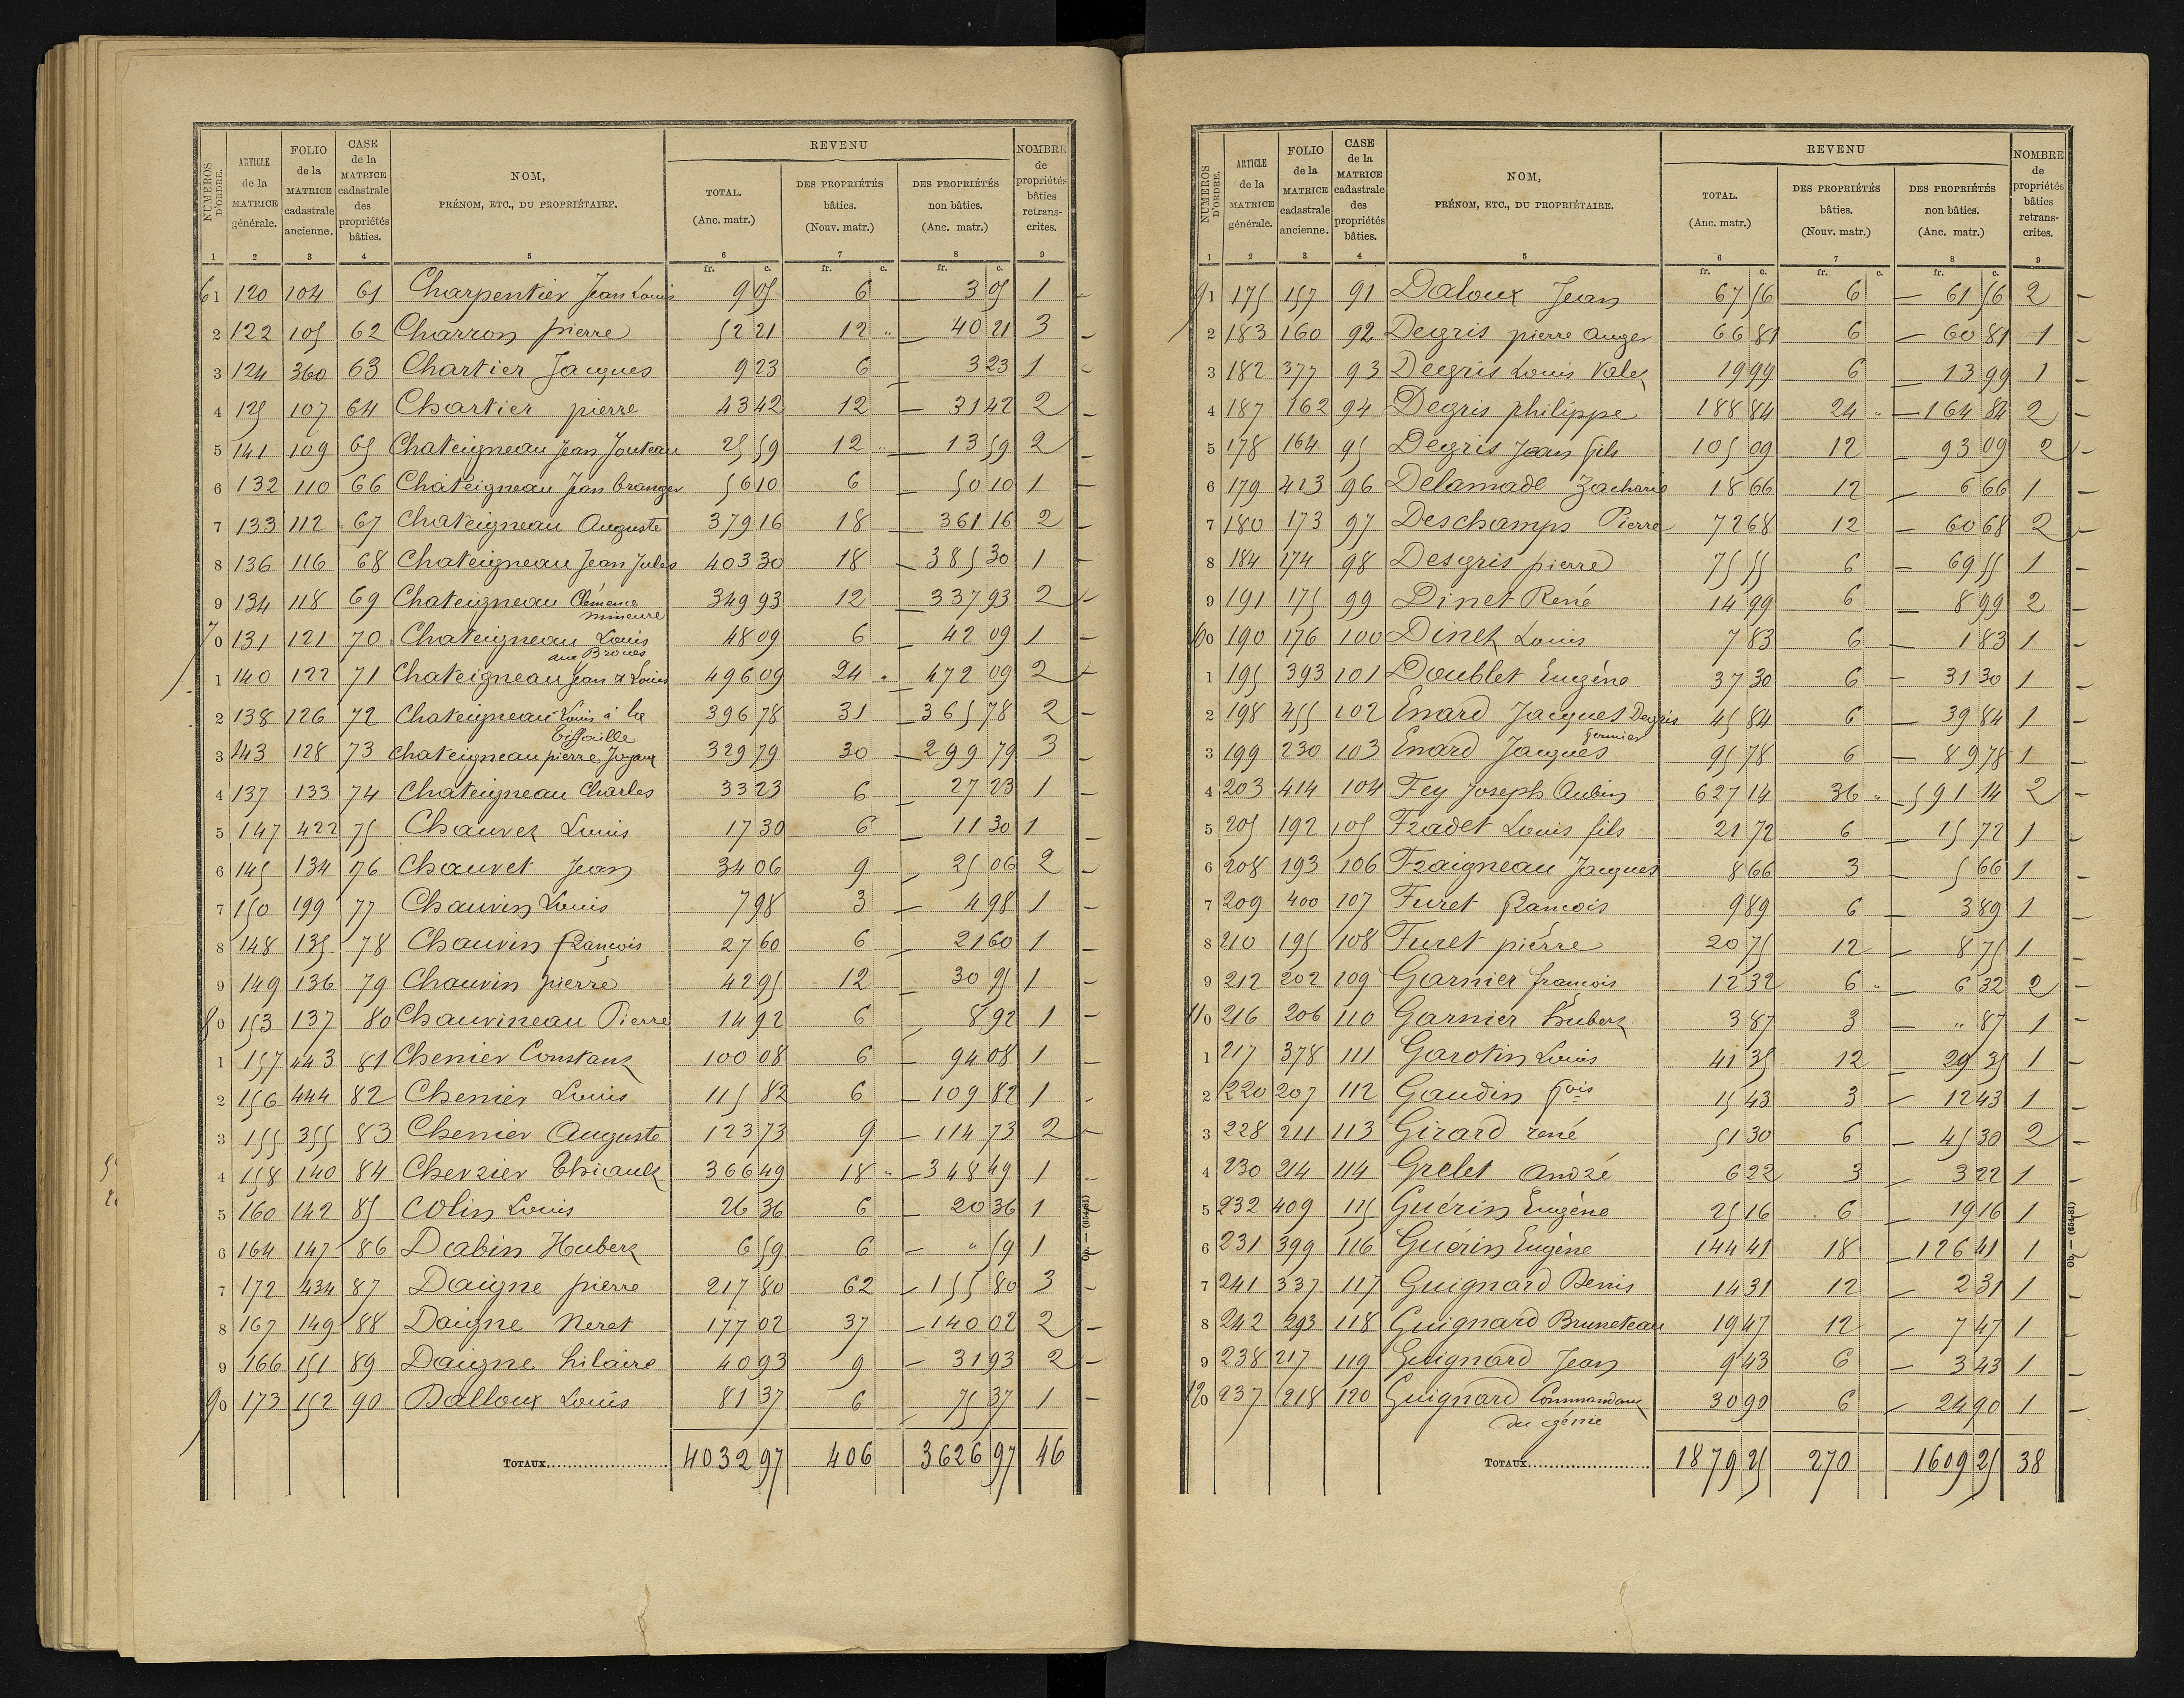 NUMÉROS D'ORDRE. | ARTICLE de la MATRICE générale. | FOLIO de la MATRICE cadastrale ancienne. | CASE de la MATRICE cadastrale des propriétés bâties. | NOM, PRÉNOM, ETC., DU PROPRIÉTAIRE. | REVENU | NOMBRE de propriétés bâties retranscrites.
TOTAL. (Anc. matr.) | DES PROPRIÉTÉS bâties. (Nouv. matr.) | DES PROPRIÉTÉS non bâties. (Anc. matr.)
1 | 2 | 3 | 4 | 5 | 6 | 7 | 8 | 9
fr. c. | fr. c. | fr. c.
61 | 120 | 104 | 61 | Charpentier Jean Louis | 9 05 | 6 | 3 05 | 1
2 | 122 | 105 | 62 | Charron pierre | 52 21 | 12 " | 40 21 | 3
3 | 124 | 360 | 63 | Chartier Jacques | 9 23 | 6 | 3 23 | 1
4 | 125 | 107 | 64 | Chartier pierre | 43 42 | 12 | 31 42 | 2
5 | 141 | 109 | 65 | Chateigneau Jean Jouteau | 25 59 | 12 " | 13 59 | 2
6 | 132 | 110 | 66 | Chateigneau Jean branger | 56 10 | 6 | 50 10 | 1
7 | 133 | 112 | 67 | Chateigneau Auguste | 379 16 | 18 | 361 16 | 2
8 | 136 | 116 | 68 | Chateigneau Jean Jules | 403 30 | 18 | 385 30 | 1
9 | 134 | 118 | 69 | Chateigneau Clémence mineure | 349 93 | 12 | 337 93 | 2
70 | 131 | 121 | 70 | Chateigneau Louis aux Broues | 48 09 | 6 | 42 09 | 1
1 | 140 | 122 | 71 | Chateigneau Jean & Louis | 496 09 | 24 " | 472 09 | 2
2 | 138 | 126 | 72 | Chateigneau Louis à la Tiffaille | 396 78 | 31 | 365 78 | 2
3 | 143 | 128 | 73 | Chateigneau pierre Joyaux | 329 79 | 30 | 299 79 | 3
4 | 137 | 133 | 74 | Chateigneau Charles | 33 23 | 6 | 27 23 | 1
5 | 147 | 422 | 75 | Chauvet Louis | 17 30 | 6 | 11 30 | 1
6 | 145 | 134 | 76 | Chauvet Jean | 34 06 | 9 | 25 06 | 2
7 | 150 | 199 | 77 | Chauvin Louis | 7 98 | 3 | 4 98 | 1
8 | 148 | 135 | 78 | Chauvin françois | 27 60 | 6 | 21 60 | 1
9 | 149 | 136 | 79 | Chauvin pierre | 42 95 | 12 | 30 95 | 1
80 | 153 | 137 | 80 | Chauvineau Pierre | 14 92 | 6 | 8 92 | 1
1 | 157 | 443 | 81 | Chenier Constant | 100 08 | 6 | 94 08 | 1
2 | 156 | 444 | 82 | Chenier Louis | 115 82 | 6 | 109 82 | 1
3 | 155 | 355 | 83 | Chenier Auguste | 123 73 | 9 | 114 73 | 2
4 | 158 | 140 | 84 | Cherzier Thiault | 366 49 | 18 " | 348 49 | 1
5 | 160 | 142 | 85 | Colin Louis | 26 36 | 6 | 20 36 | 1
6 | 164 | 147 | 86 | Dabin Hubert | 6 59 | 6 | " 59 | 1
7 | 172 | 434 | 87 | Daigne pierre | 217 80 | 62 | 155 80 | 3
8 | 167 | 149 | 88 | Daigne Neret | 177 02 | 37 | 140 02 | 2
9 | 166 | 151 | 89 | Daigne hilaire | 40 93 | 9 | 31 93 | 2
90 | 173 | 152 | 90 | Dalloux Louis | 81 37 | 6 | 75 37 | 1
TOTAUX | 4032 97 | 406 | 3626 97 | 46
Ob. — (654-81)
NUMÉROS D'ORDRE. | ARTICLE de la MATRICE générale. | FOLIO de la MATRICE cadastrale ancienne. | CASE de la MATRICE cadastrale des propriétés bâties. | NOM, PRÉNOM, ETC., DU PROPRIÉTAIRE. | REVENU | NOMBRE de propriétés bâties retranscrites.
TOTAL. (Anc. matr.) | DES PROPRIÉTÉS bâties. (Nouv. matr.) | DES PROPRIÉTÉS non bâties. (Anc. matr.)
1 | 2 | 3 | 4 | 5 | 6 | 7 | 8 | 9
fr. c. | fr. c. | fr. c.
91 | 175 | 157 | 91 | Daloux Jean | 67 56 | 6 | 61 56 | 2
2 | 183 | 160 | 92 | Degris pierre auger | 66 81 | 6 | 60 81 | 1
3 | 182 | 377 | 93 | Degris Louis Valet | 19 99 | 6 | 13 99 | 1
4 | 187 | 162 | 94 | Degris philippe | 188 84 | 24 " | 164 84 | 2
5 | 178 | 164 | 95 | Degris Jean fils | 105 09 | 12 | 93 09 | 2
6 | 179 | 413 | 96 | Delamade Zacharie | 18 66 | 12 | 6 66 | 1
7 | 180 | 173 | 97 | Deschamps Pierre | 72 68 | 12 | 60 68 | 2
8 | 184 | 174 | 98 | Desgris pierre | 75 55 | 6 | 69 55 | 1
9 | 191 | 175 | 99 | Dinet René | 14 99 | 6 | 8 99 | 2
100 | 190 | 176 | 100 | Dinet Louis | 7 83 | 6 | 1 83 | 1
1 | 195 | 393 | 101 | Doublet Eugène | 37 30 | 6 | 31 30 | 1
2 | 198 | 455 | 102 | Enard Jacques Degris fermier | 45 84 | 6 | 39 84 | 1
3 | 199 | 230 | 103 | Enard Jacques | 95 78 | 6 | 89 78 | 1
4 | 203 | 414 | 104 | Fey Joseph Aubin | 627 14 | 36 " | 591 14 | 2
5 | 205 | 192 | 105 | Fradet Louis fils | 21 72 | 6 | 15 72 | 1
6 | 208 | 193 | 106 | Fraigneau Jacques | 8 66 | 3 | 5 66 | 1
7 | 209 | 400 | 107 | Furet francois | 9 89 | 6 | 3 89 | 1
8 | 210 | 195 | 108 | Furet pierre | 20 75 | 12 | 8 75 | 1
9 | 212 | 202 | 109 | Garnier francois | 12 32 | 6 " | 6 32 | 2
110 | 216 | 206 | 110 | Garnier hubert | 3 87 | 3 | " 87 | 1
1 | 217 | 378 | 111 | Garotin Louis | 41 35 | 12 | 29 35 | 1
2 | 220 | 207 | 112 | Gaudin fois | 15 43 | 3 | 12 43 | 1
3 | 228 | 211 | 113 | Girard rené | 51 30 | 6 | 45 30 | 2
4 | 230 | 214 | 114 | Grelet André | 6 22 | 3 | 3 22 | 1
5 | 232 | 409 | 115 | Guérin Eugène | 25 16 | 6 | 19 16 | 1
6 | 231 | 399 | 116 | Guerin Eugène | 144 41 | 18 | 126 41 | 1
7 | 241 | 337 | 117 | Guignard Denis | 14 31 | 12 | 2 31 | 1
8 | 242 | 293 | 118 | Guignard Bruneteau | 19 47 | 12 | 7 47 | 1
9 | 238 | 217 | 119 | Guignard Jean | 9 43 | 6 | 3 43 | 1
120 | 237 | 218 | 120 | Guignard Commandant du génie | 30 90 | 6 | 24 90 | 1
TOTAUX | 1879 25 | 270 | 1609 25 | 38
Ob. — (654-81)